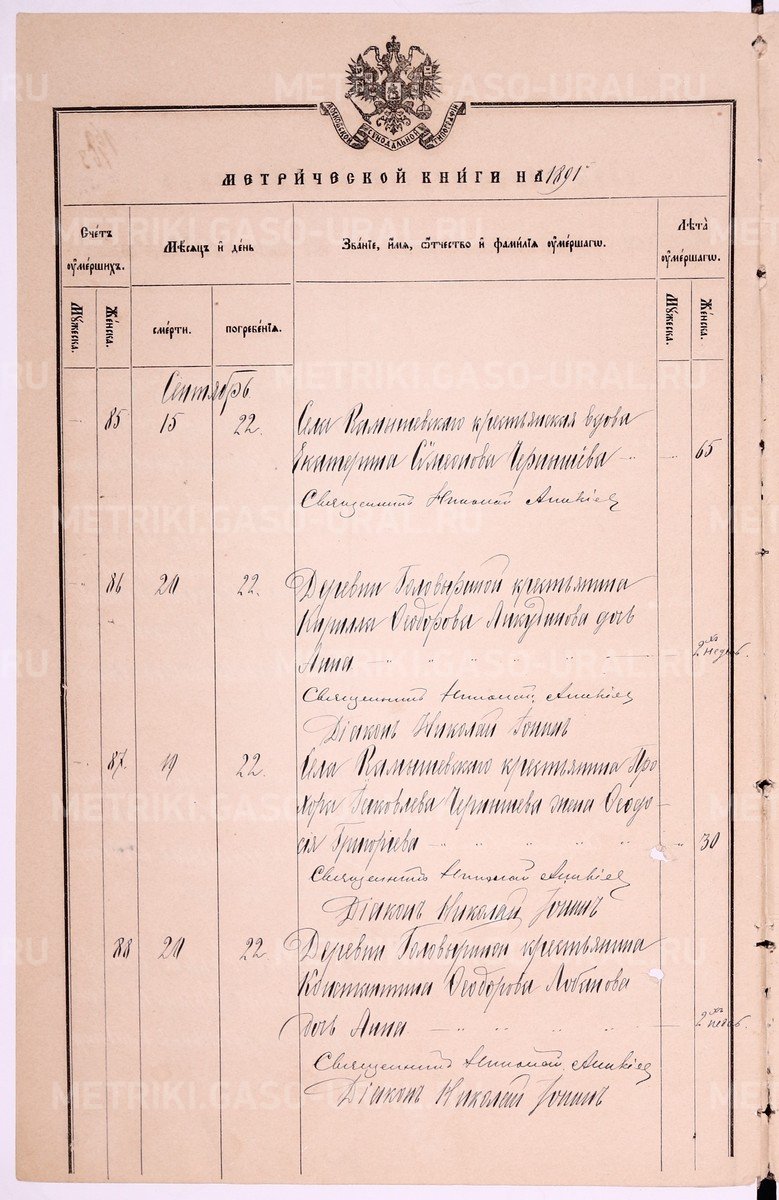 МОСКОВСКОЙ СѴНОДАЛЬНОЙ ТИПОГРАФІИ
МЕТРИ́ЧЕСКОЙ КНИ́ГИ НА 1891
Сче́тъ ѹ҆ме́ршихъ.
Мѣ́сяцъ и҆ де́нь
Зва́нїе, и҆́мя, ѻ҆́тчество и҆ фами́лїя ѹ҆ме́ршагѡ.
Лѣ́та ѹ҆ме́ршагѡ.
Мꙋ́жеска.
Же́нска.
сме́рти.
погребе́нїя.
Мꙋ́жеска.
Же́нска.
Сентябрь.
85 15 22. Села Камышевскаго крестьянская вдова
Екатерина Сѵмеонова Чернышева 65
Священникъ Николай Аникіев
86 20 22. Деревни Головыриной крестьянина
Кирилла Ѳеодорова Ликудинова дочь
Анна 2хъ недѣл.
Священникъ Николай Аникіев
Діаконъ Николай Іонинъ
87. 19 22. Села Камышевскаго крестьянина Про
хора Іаковлева Чернышева жена Ѳеодо-
сія Григоріева 30
Священникъ Николай Аникіев
Діаконъ Николай Іонинъ
88 20 22 Деревни Головыриной крестьянина
Константина Ѳеодорова Лобанова
дочь Анна 2хъ недѣл.
Священникъ Николай Аникіев
Діаконъ Николай Іонинъ
METRIKI.GASO-URAL.RU